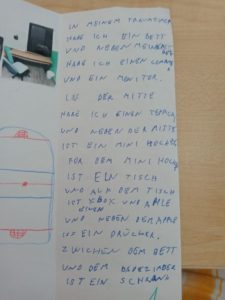 IN MEINEM TRAUMZIMMER
HABE ICH EIN BETT
UND NEBEN MEINEM BETT
HABE ICH EINEN COMPUTER
UND EIN MONITOR.
IN DER MITTE
HABE ICH EINEN TEPPICH
UND NEBEN DER MITTE
IST EIN MINI HOCKEY
FOR DEM MINI HOCKEY
IST EIN TISCH
UND AUF DEM TISCH
IST XBOX UND APPLE
UND NEBEN DEM APPLE
IST EIN DRUCKER.
ZWICHEN DEM BETT
UND DEM
IST EIN SCHRANK